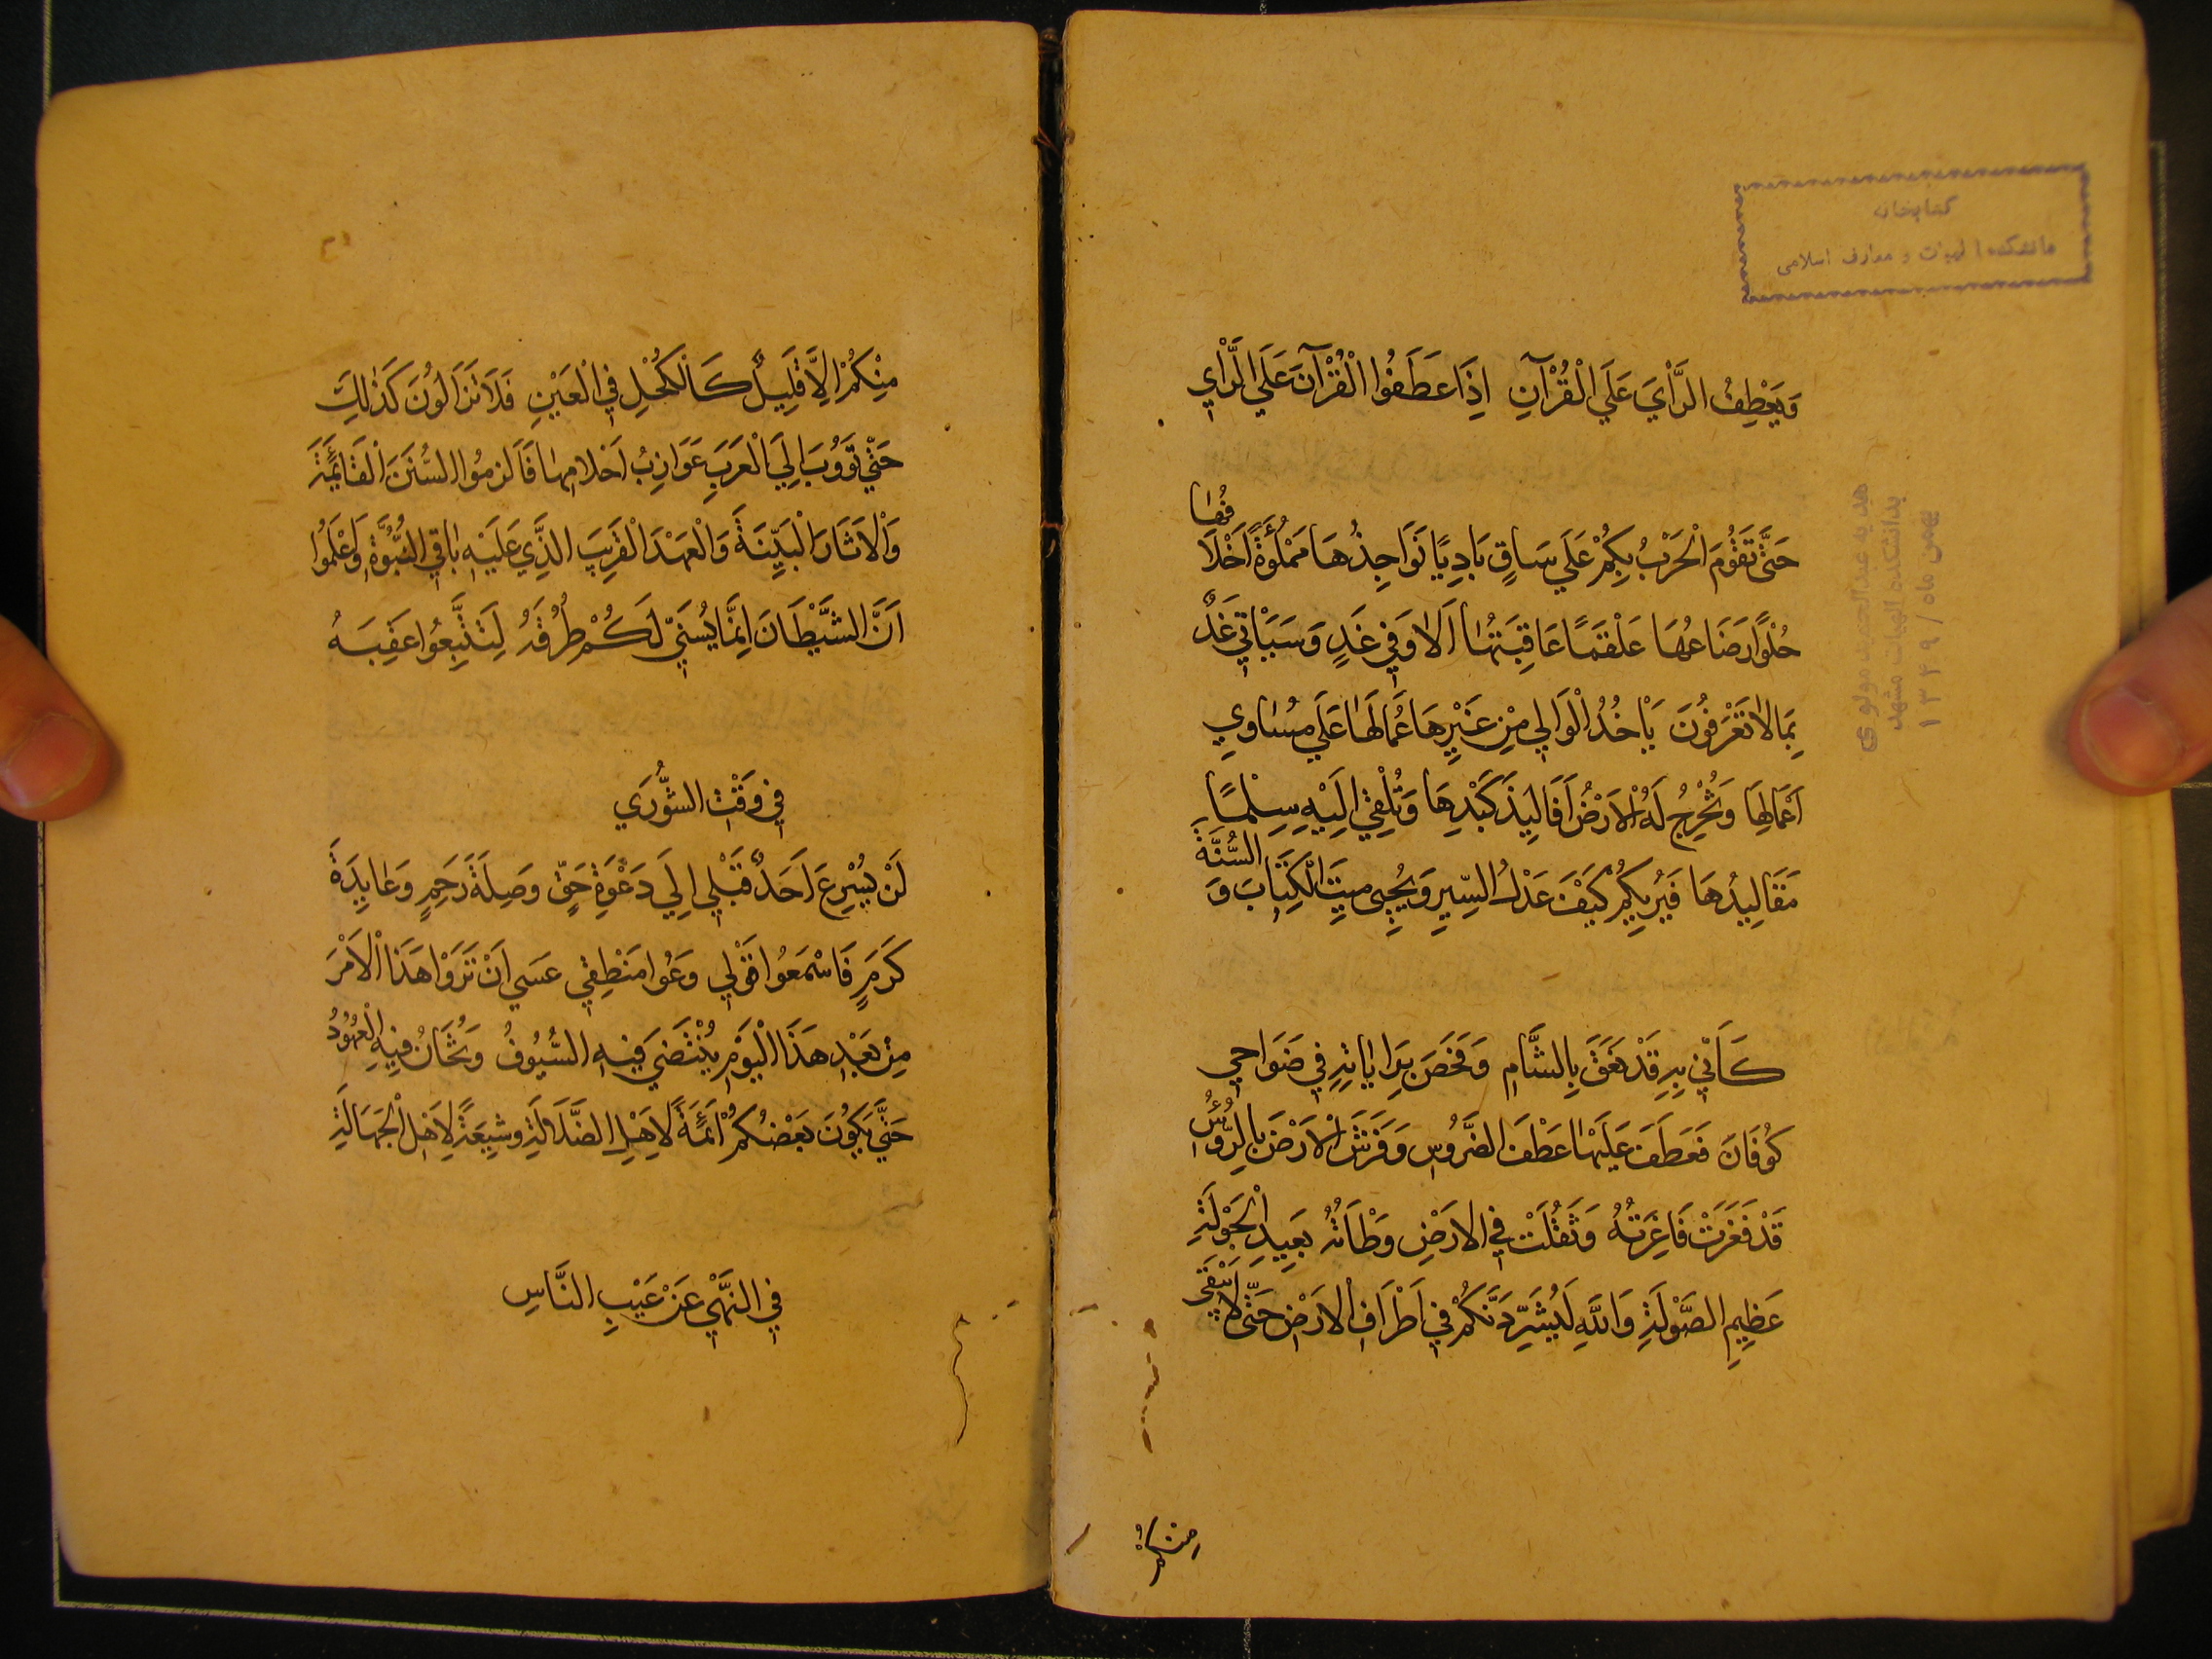 كتابخانه
دانشكده الهيات و معارف اسلامى
هديه عبدالحميد مولوى
بدانشكده الهيات مشهد
بهمن ماه / ١٣٤٩
وَيَعْطِفُ الرَّأْيَ عَلَي الْقُرْآنِ اِذَا عَطَفُوا الْقُرْآنَ عَلَي الرَّأْيِ
حَتَّي تَقُومَ الْحَرْبُ بِكُمْ عَلَي سَاقٍ بَادِيًا نَوَاجِذُهَا مَمْلُوَّةً اَخْلَافُهَا
حُلْوًا رَضَاعُهَا عَلْقَمًا عَاقِبَتُهَا اَلَا وَفِي غَدٍ وَسَيَأْتِي غَدٌ
بِمَا لَا تَعْرِفُونَ يَأْخُذُ الْوَالِي مِنْ غَيْرِهَا عُمَّالَهَا عَلَي مَسَاوِي
اَعْمَالِهَا وَتُخْرِجُ لَهُ الْاَرْضُ اَفَالِيذَ كَبْدِهَا وَتُلْقِي اِلَيْهِ سِلْمًا
مَقَالِيدُهَا فَيُرِيكُمْ كَيْفَ عَدْلُ السِّيرِ وَيُحْيِي مَيِّتَ الْكِتَابَ وَ السُّنَّةَ
كَاَنِّي بِهِ قَدْ نَعَقَ بِالشَّامِ وَفَحَصَ بِرَايَاتِهِ فِي ضَوَاحِي
كُوفَانَ فَعَطَفَ عَلَيْهَا عَطْفَ الضَّرُوسِ وَفَرَشَ الْاَرْضَ بِالرُّؤُسِ
قَدْ فَغَرَتْ فَاغِرَتُهُ وَثَقُلَتْ فِي الْاَرْضِ وَطْاَتُهُ بَعِيدِ الْجَوْلَةِ
عَظِيمِ الصَّوْلَةِ وَاللَّهِ لَيُشَرِّدَنَّكُمْ فِي اَطْرَافِ الْاَرْضِ حَتَّي لَا يَبْقَي
مِنْكُمْ
مِنْكُمْ اِلَّا قَلِيلٌ كَالْكُحْلِ فِي الْعَيْنِ فَلَا تَزَالُونَ كَذَلِكَ
حَتَّي تَؤُوبَ اِلَي الْعَرَبِ عَوَازِبُ اَحْلَامِهَا فَالْزِمُوا السُّنَنَ الْقَائِمَةَ
وَالْاَثَارَ الْبَيِّنَةَ وَالْعَهْدَ الْقَرِيبَ الَّذِي عَلَيْهِ بَاقِي النُّبُوَّةِ وَاعْلَمُوا
اَنَّ الشَّيْطَانَ اِنَّمَا يُسَنِّي لَكُمْ طُرُقَهُ لِتَتَّبِعُوا عَقِبَهُ
فِي وَقْتِ الشُّورَي
لَنْ يُسْرِعَ اَحَدٌ قَبْلِي اِلَي دَعْوَةِ حَقٍّ وَصِلَةَ رَحِمٍ وَعَايِدَةَ
كَرَمٍ فَاسْمَعُوا قَوْلِي وَعُوا مَنْطِقِي عَسَي اَنْ تَرَوْا هَذَا الْاَمْرَ
مِنْ بَعْدِ هَذَا الْيَوْمِ يُنْتَضَي فِيهِ السُّيُوفُ وَتُخَانُ فِيهِ الْعُهُودُ
حَتَّي يَكُونَ بَعْضُكُمْ اَئِمَّةً لِاَهْلِ الضَّلَالَةِ وَشِيعَةً لِاَهْلِ الْجَهَالَةِ
فِي النَّهْيِ عَنْ عَيْبِ النَّاسِ